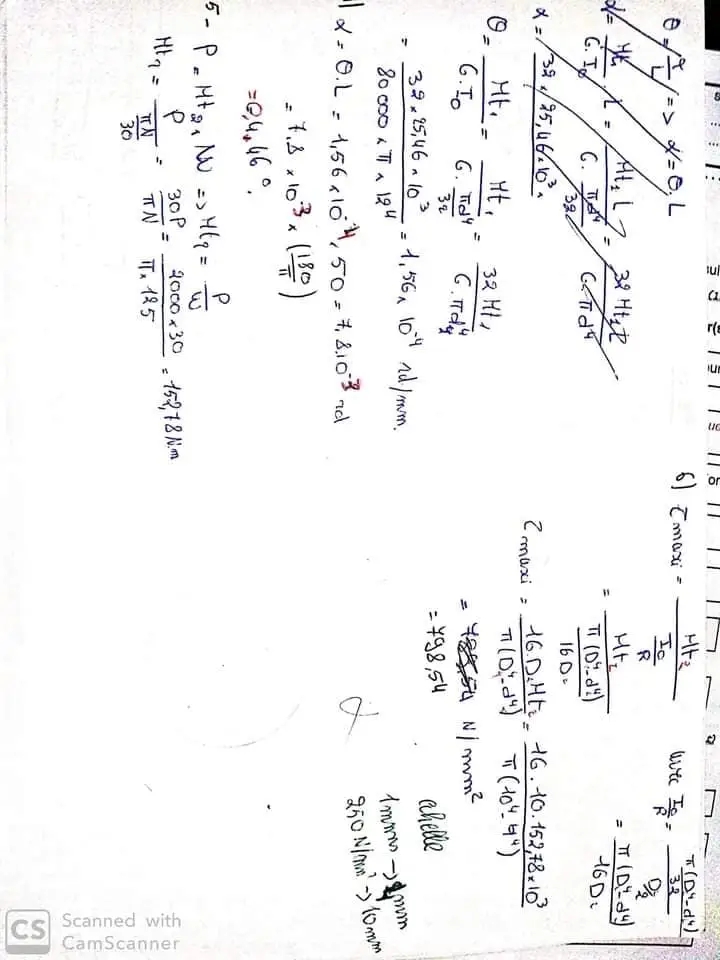 θ = α/L => α = θ.L
α = Mt₁/(G.I₀) . L = Mt₁ L/(G. πd⁴/32) = 32 Mt₁ L/(G πd⁴)
α = 32 x 25,46 x 10³ x
θ = Mt₁/(G.I₀) = Mt₁/(G. πd⁴/32) = 32 Mt₁/(G. πd⁴)
= (32 x 25,46 x 10³)/(80 000 x π x 12⁴) = 1,56 x 10⁻⁴ rd/mm.
α = θ.L = 1,56 x 10⁻⁴, 50 = 7,8.10⁻³ rd
= 7,8 x 10⁻³ x (180/π)
= 0,446°.
5 - P = Mt₂ x W => Mt₂ = P/W
Mt₂ = P/(πN/30) = 30P/πN = (2000 x 30)/(π x 125) = 152,78 N.m
6) τmaxi = Mt₂/(I₀/R) avec I₀/R = (π(D⁴-d⁴)/32)/(D/2)
= Mt₂/(π(D⁴-d⁴)/16D) = π(D⁴-d⁴)/16D
τmaxi = 16.D.Mt₂/π(D⁴-d⁴) = 16.10.152,78 x 10³/π(10⁴-4⁴)
= N/mm²
= 798,54
echelle
1mm -> 1mm
250 N/mm² -> 10mm
CS Scanned with
CamScanner